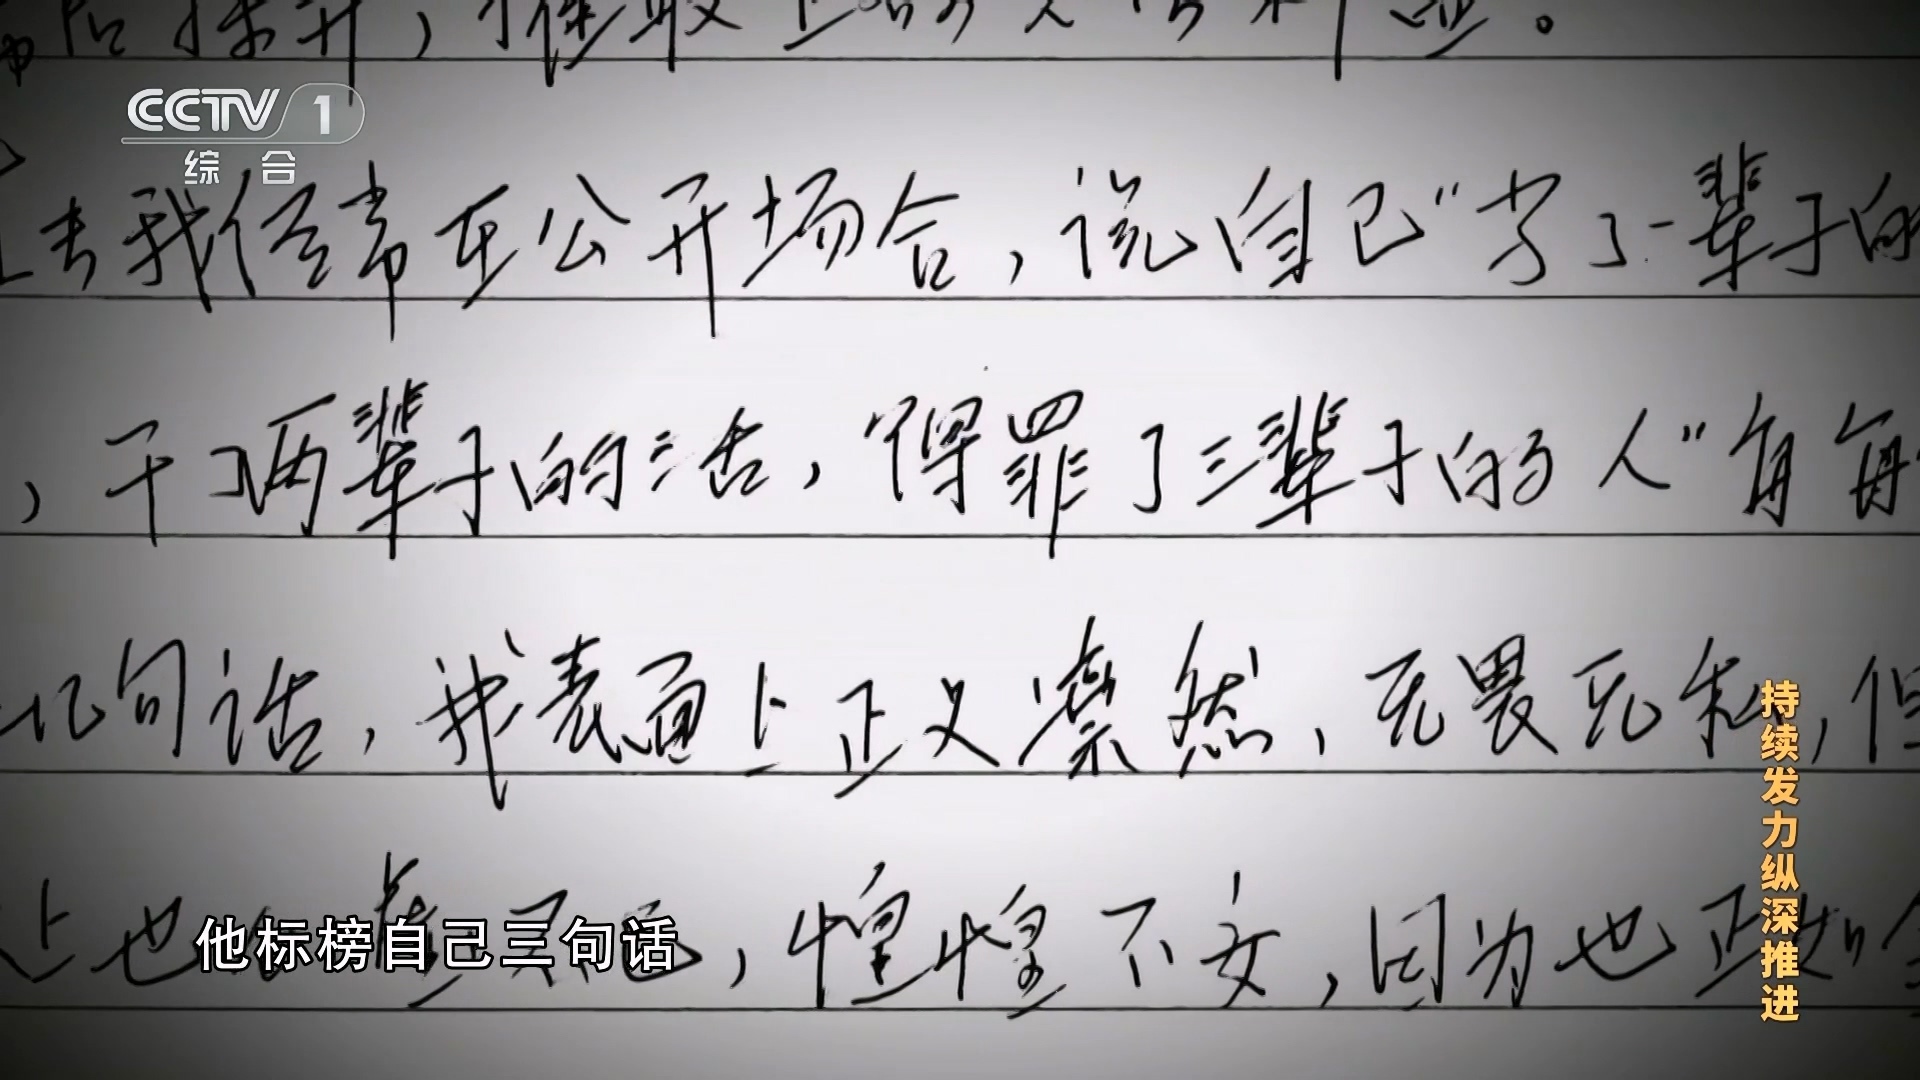 CCTV 1
综合
去我经常在公开场合，说自己“当了一辈子的
，干了两辈子的活，得罪了三辈子的人”每每
此句话，我表面上正义凛然，无畏无私，但
上也
，惶惶不安，因为也正如
他标榜自己三句话
持续发力纵深推进